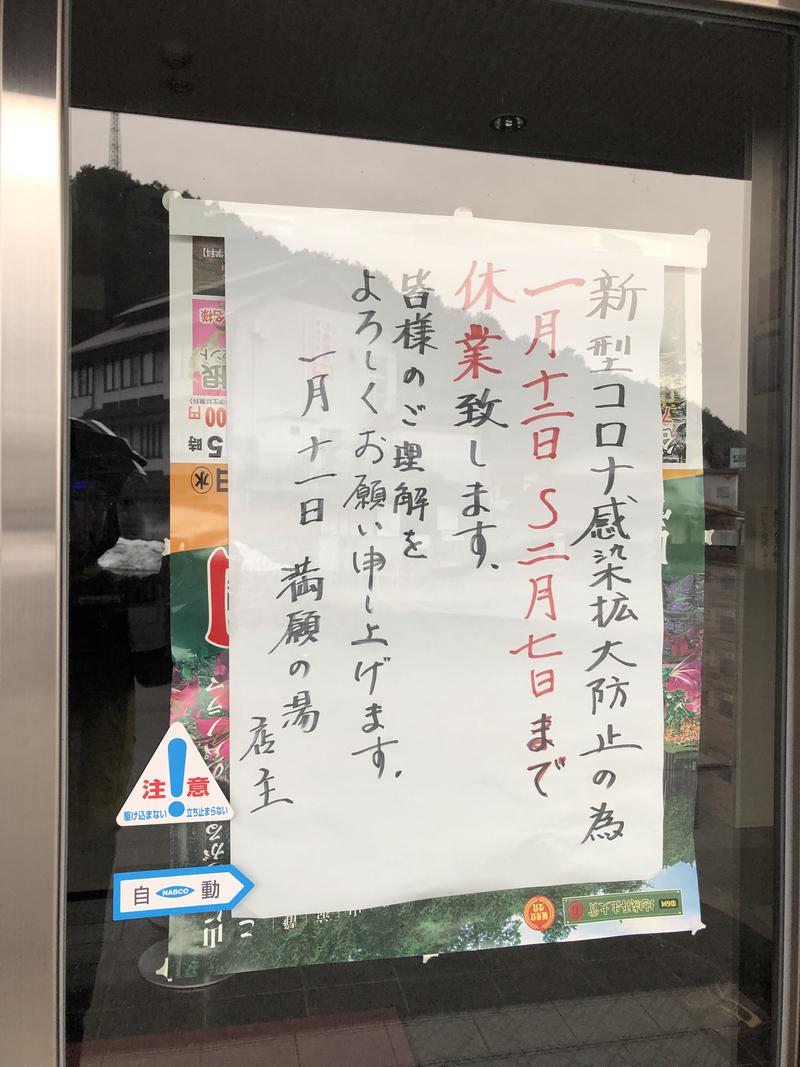 新型コロナ感染拡大防止の為
一月十二日〜二月七日まで
休業致します。
皆様のご理解を
よろしくお願い申し上げます。
一月十一日 満願の湯
店主
注意
駆け込まない 立ち止まらない
自 NABCO 動